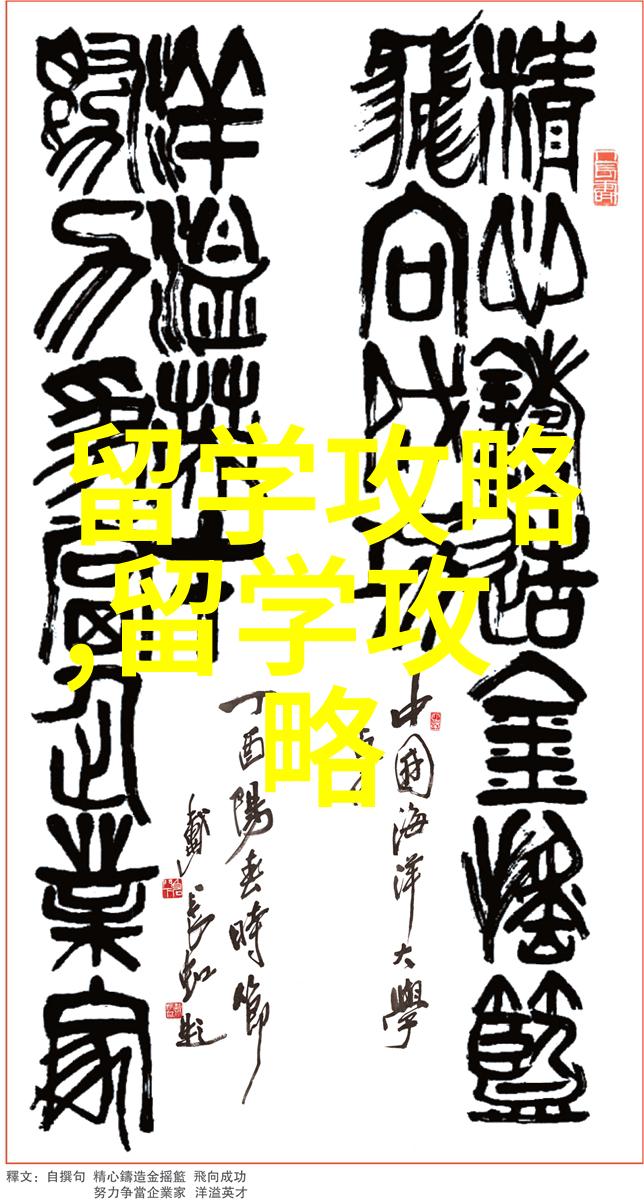 精心鑄造金搖籃
飛向成功
中國海洋大學
丁酉陽春時節
戴長虹題
洋溢英才
努力爭當企業家
留学攻略
,留学攻
略
釋文：自撰句 精心鑄造金摇籃 飛向成功
努力争當企業家 洋溢英才